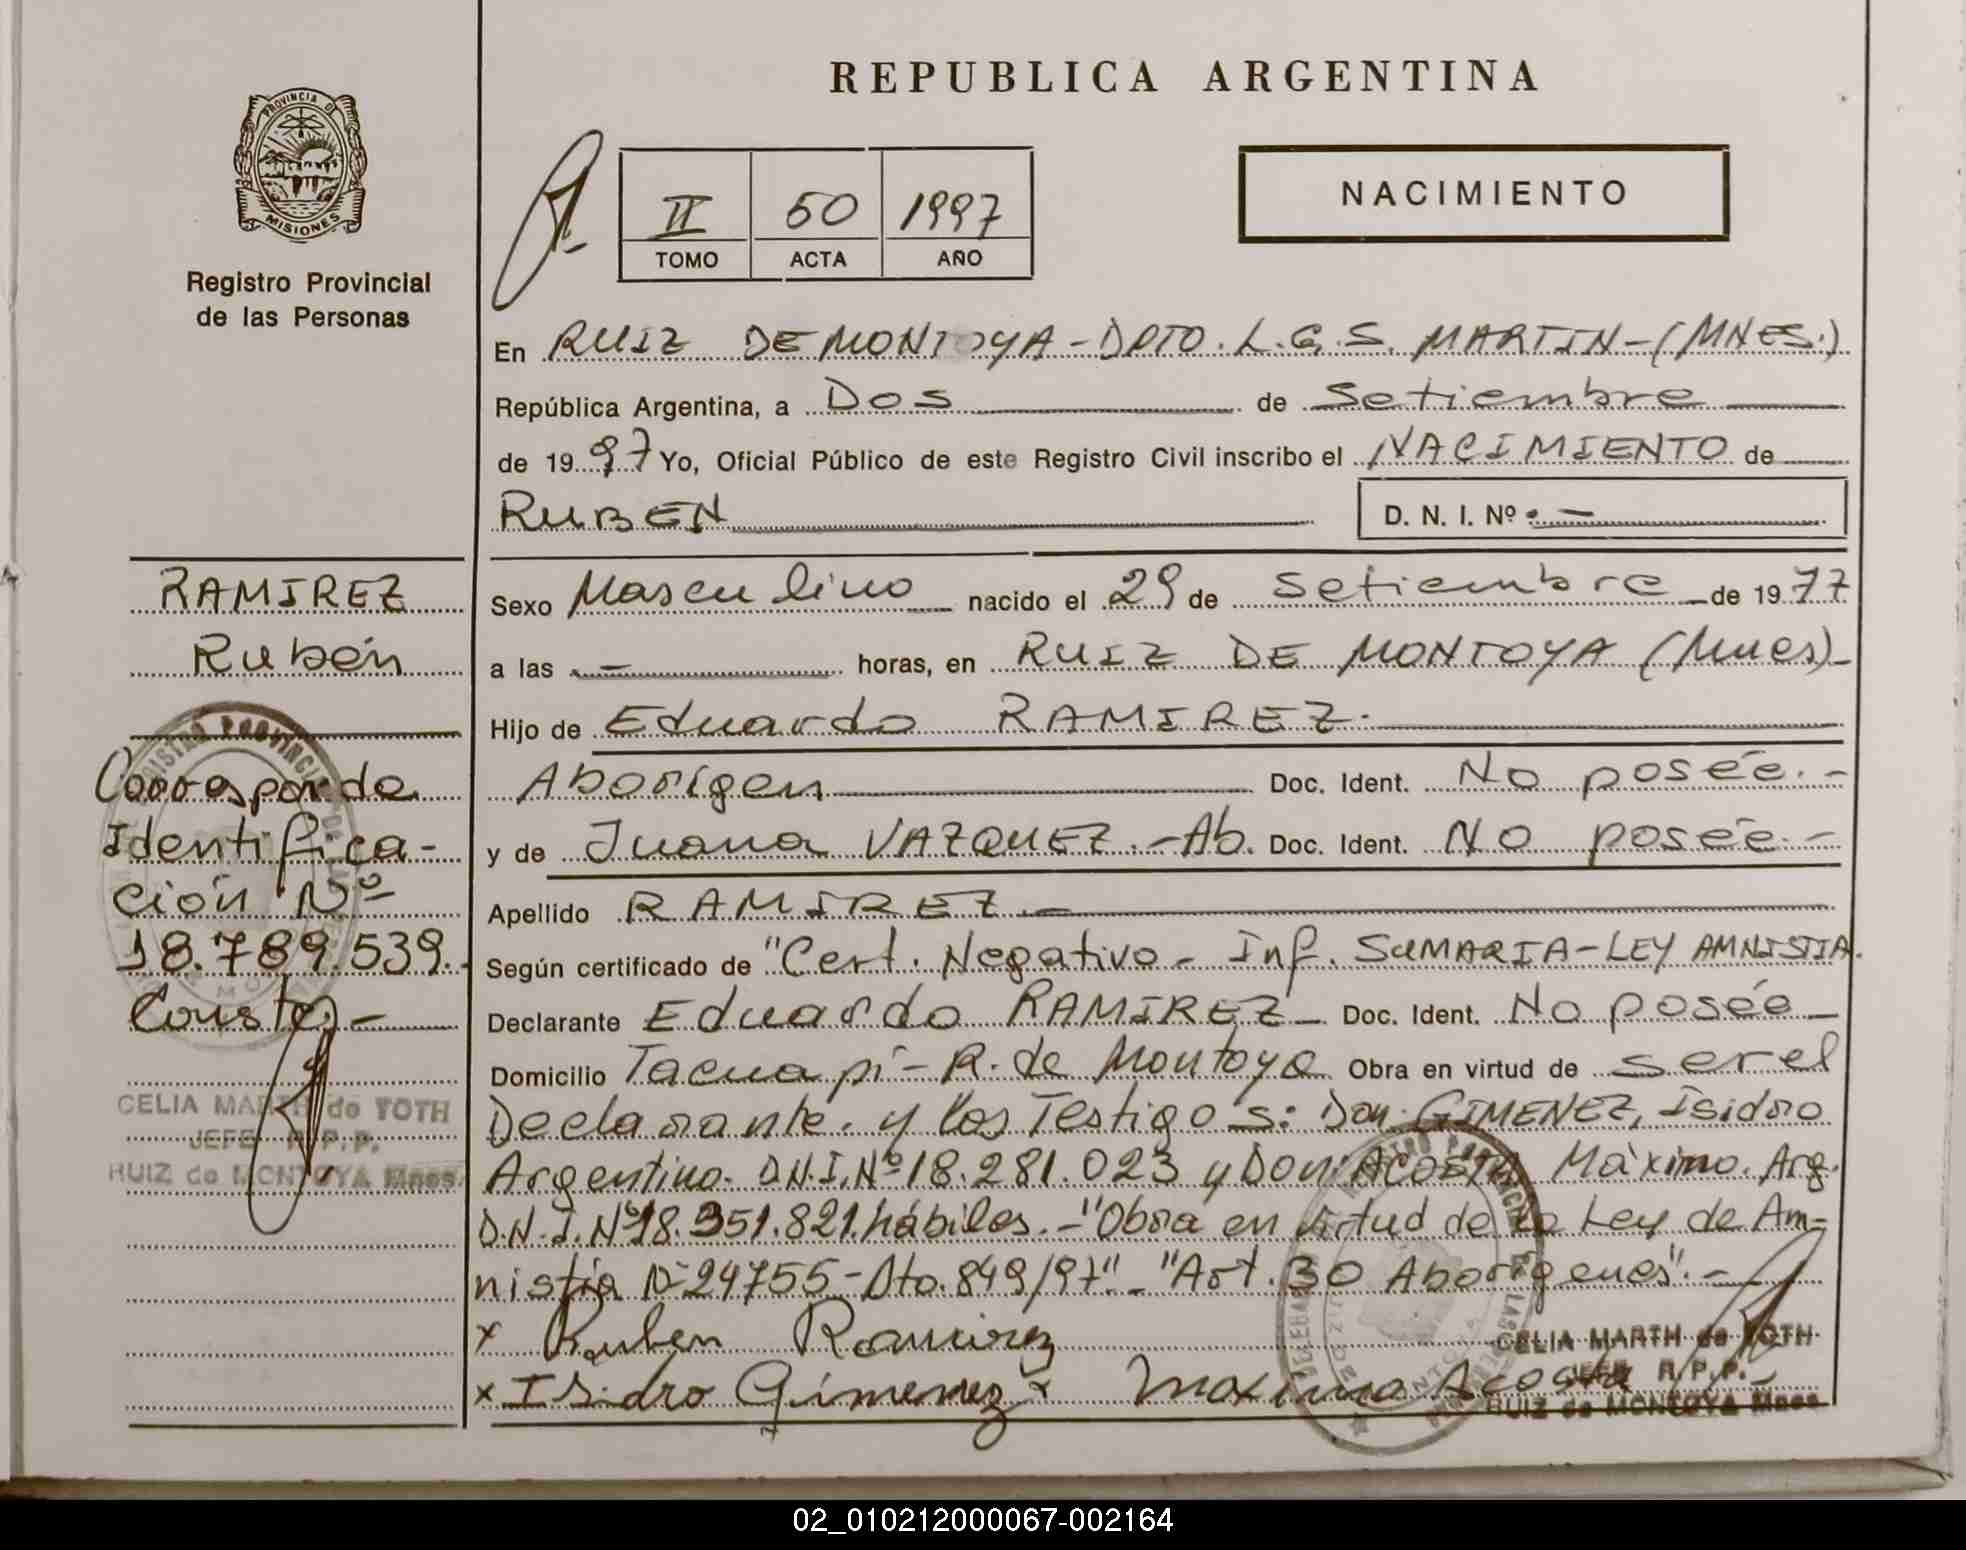 REPUBLICA ARGENTINA
PROVINCIA D
MISIONES
Registro Provincial
de las Personas
II 50 1997
TOMO ACTA AÑO
NACIMIENTO
En RUIZ DE MONTOYA - DPTO. L.G.S. MARTIN - (MNES.)
República Argentina, a Dos de Setiembre
de 1997 Yo, Oficial Público de este Registro Civil inscribo el NACIMIENTO de
RUBEN D. N. I. Nº -
RAMIREZ
Rubén
Corresponde
Identifica-
ción Nº
18.789.539.-
Conste,-
CELIA MARTH de TOTH
JEFE R.P.P.
RUIZ de MONTOYA Mnes
Sexo Masculino nacido el 29 de Setiembre de 1977
a las - horas, en RUIZ DE MONTOYA (Mnes)-
Hijo de Eduardo RAMIREZ.
Aborígen Doc. Ident. No posée.-
y de Juana VAZQUEZ.-Ab. Doc. Ident. No posée.-
Apellido RAMIREZ.-
Según certificado de "Cert. Negativo- Inf. SUMARIA-LEY AMNISTIA.
Declarante Eduardo RAMIREZ- Doc. Ident. No posée-
Domicilio Tacuapí - R. de Montoya Obra en virtud de ser el
Declarante. y los Testigos: Don: GIMENEZ, Isidro
Argentino. D.N.I.Nº 18.281.023 y Don: ACOSTA Máximo. Arg.
D.N.I. Nº 18.951.821. hábiles.-"Obra en virtud de la Ley de Am-
nistía Nº 24755-Dto. 849/97"-"Art. 30 Aborígenes".-
x Ruben Ramirez
x Isidro Gimenez x Maximo Acosta
CELIA MARTH de TOTH
JEFE R.P.P.
RUIZ de MONTOYA Mnes
02_010212000067-002164